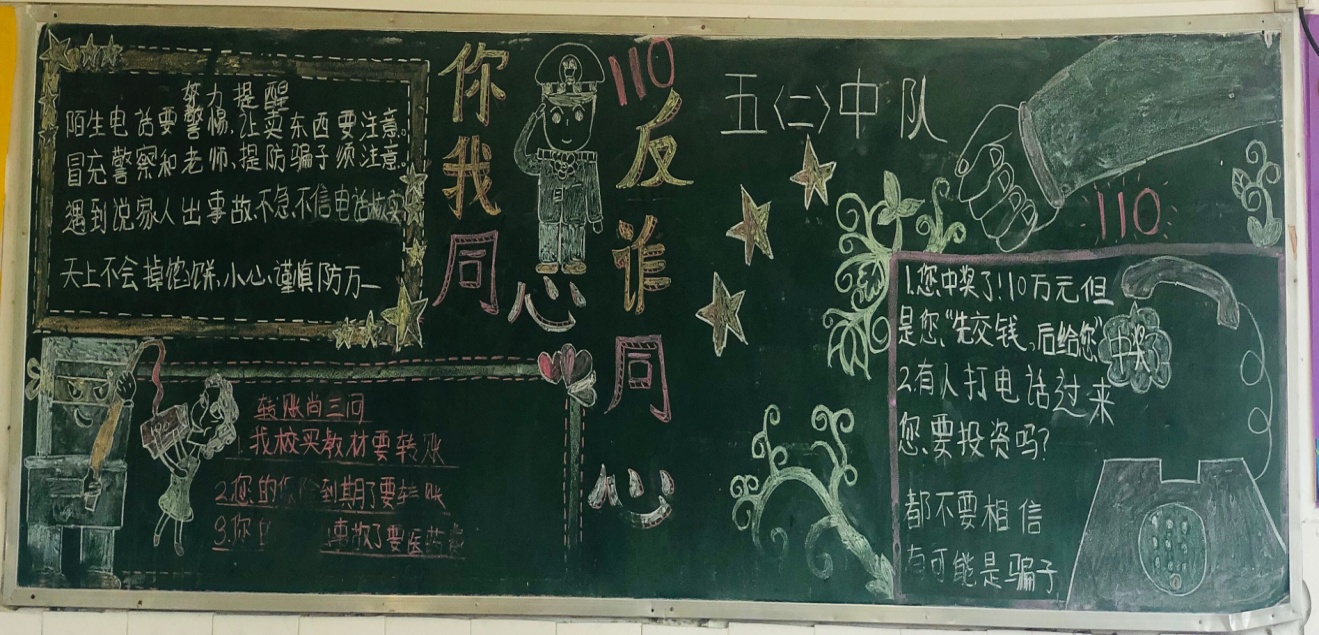 努力提醒
陌生电话要警惕,让卖东西要注意。
冒充警察和老师、提防骗子须注意。
遇到说家人出事故,不急不信电话核实
天上不会掉馅饼,小心谨慎防万一
转账尚三问
1.我校买教材要转账
2.您的保险到期了要转账
3.你 事故了要医药费
你我同心
110
反诈同心
五〈二〉中队
110
1.您中奖了!10万元但
是您“先交钱,后给您”
中奖了
2.有人打电话过来
您要投资吗?
都不要相信
有可能是骗子